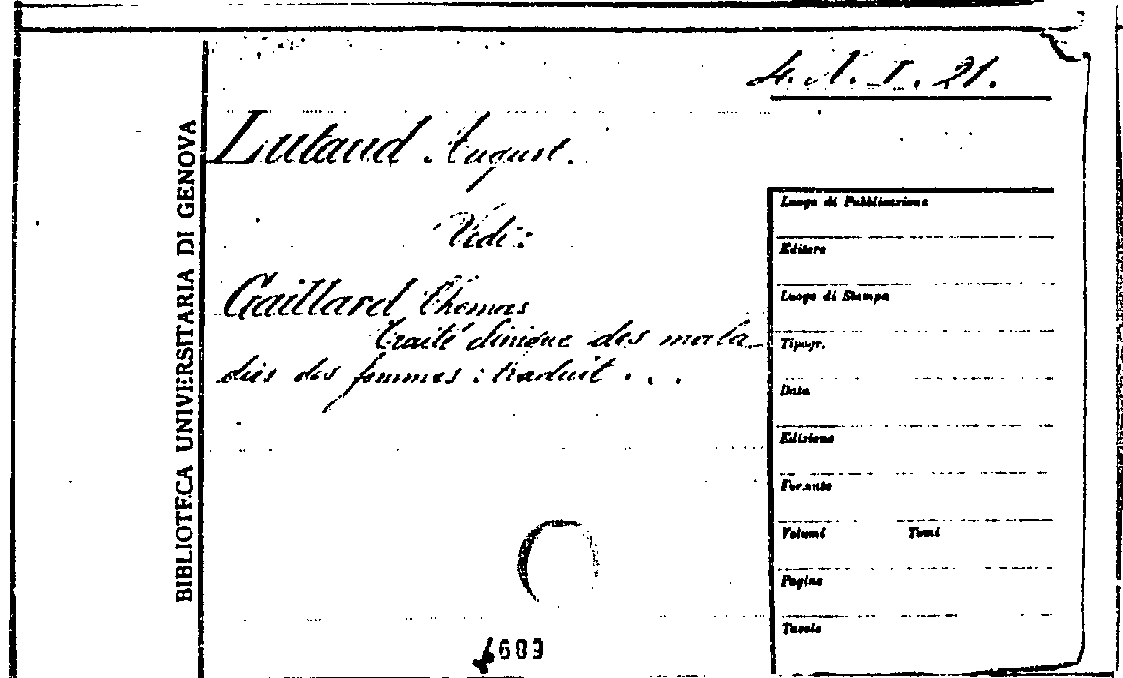 4. A. I. 21.
BIBLIOTECA UNIVERSITARIA DI GENOVA
Lutaud August.
Vedi:
Gaillard Thomas
traité clinique des mala-
dies des femmes : traduit . . .
Luogo di Pubblicazione
Editore
Luogo di Stampa
Tipogr.
Data
Edizione
Formato
Volumi Tomi
Pagine
Tavole